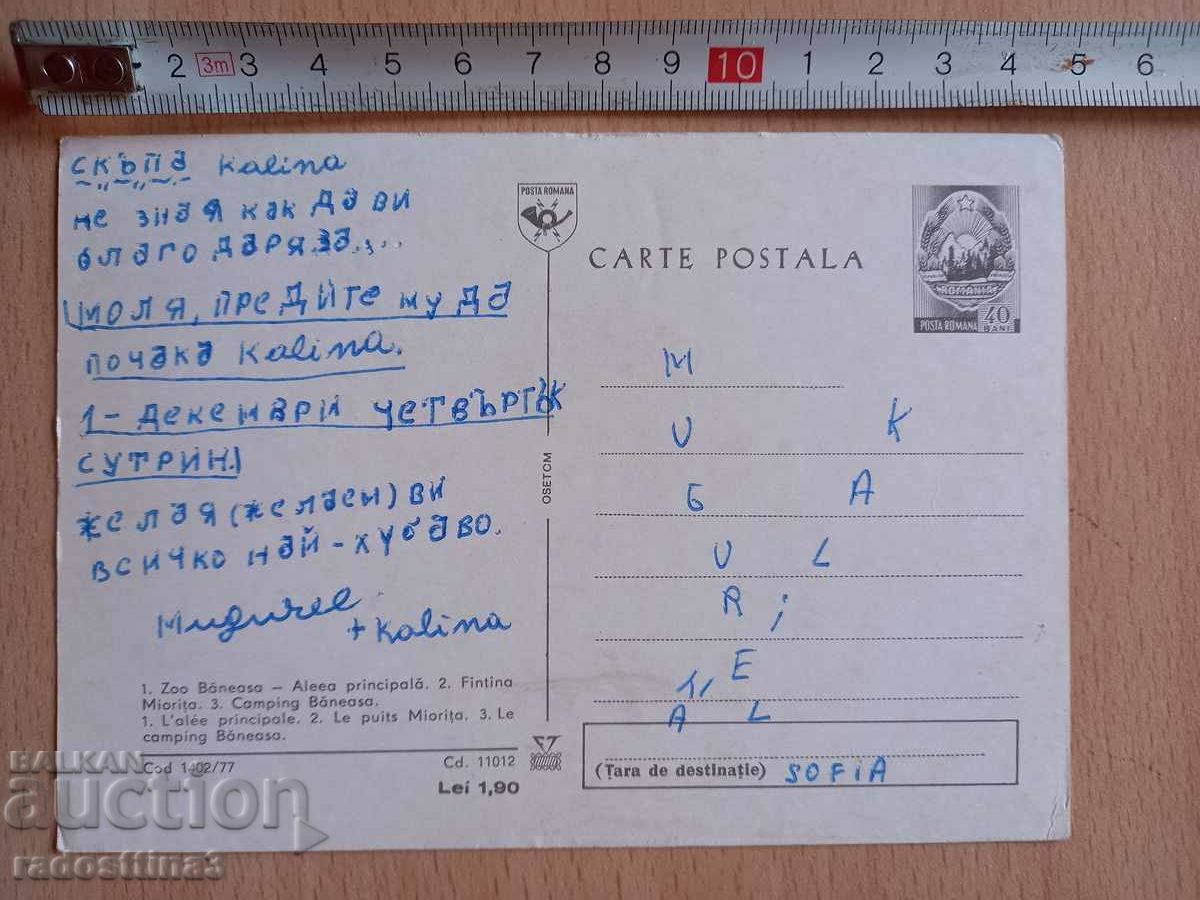 2 3m 3 4 5 6 7 8 9 10 1 2 3 4 5 6
СКЪПА Kalina
НЕ ЗНАЯ КАК ДА ВИ
БЛАГОДАРЯ ЗА...
МОЛЯ, ПРЕДИТЕ МУ ДА
ПОЧАКА Kalina.
1 - ДЕКЕМВРИ ЧЕТВЪРТЪК
СУТРИН!
ЖЕЛАЯ (ЖЕЛАЕМ) ВИ
ВСИЧКО НАЙ-ХУБАВО.
+ Kalina
1. Zoo Băneasa — Aleea principală. 2. Fîntîna
Miorița. 3. Camping Băneasa.
1. L'alée principale. 2. Le puits Miorița. 3. Le
camping Băneasa.
Cod 1402/77
Cd. 11012
Lei 1,90
OSETCM
POSTA ROMANA
CARTE POSTALA
ROMANIA
POSTA ROMANA 40 BANI
M
U K
G A
U L
R I
E
A L
(Țara de destinație) SOFIA
BALKAN
auction
radosttina3